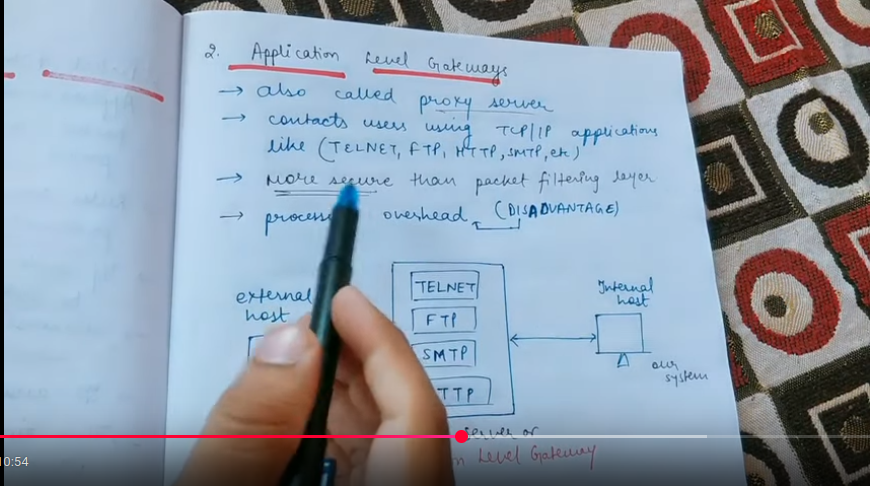 2. Application Level Gateways
→ also called proxy server
→ contacts users using TCP/IP applications
like (TELNET, FTP, HTTP, SMTP, etc)
→ More secure than packet filtering layer
→ overhead (DISADVANTAGE)
external
host
TELNET
FTP
SMTP
Internal
host
our
system
server or
Level Gateway
10:54